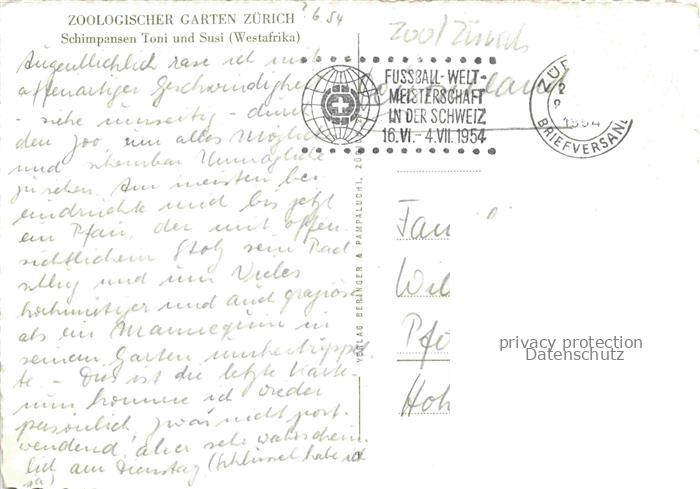 ZOOLOGISCHER GARTEN ZÜRICH
Schimpansen Toni und Susi (Westafrika)
6.54
Augenblicklich rase ich mit
affenartiger Geschwindigkei
- siehe umseitig - durch
den Zoo, um alles Möglich
und scheinbar Unmögliche
zu sehen. Am meisten be
eindruckte mich bis jetzt
ein Pfau, der mit offen
sichtlichem Stolz sein Rad
schlug und um Vieles
hochmütiger und auch graziöse
als ein Mannequin in
seinem Garten
te - Dies ist die letzte Karte
nun komme ich wieder
persönlich, zwar nicht post
wendend, aber sehr wahrschein
lich am Dienstag (Schlüssel habe ich
ja)
VERLAG BERINGER & PAMPALUCHI, ZÜ
Zoo/Zürich
FUSSBALL-WELT-
MEISTERSCHAFT
IN DER SCHWEIZ
16.VI.-4.VII.1954
ZÜR
1954
BRIEFVERSAND
Fam
Wil
Pfö
Hoh
privacy protection
Datenschutz